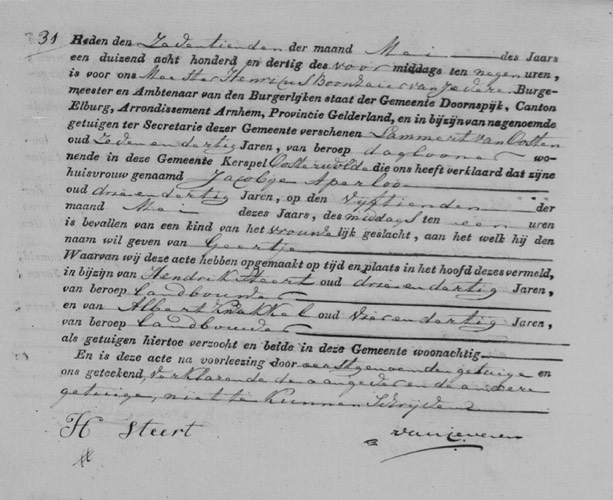 31 Heden den Zeventienden der maand Mei des Jaars
een duizend acht honderd en dertig des voor middags ten negen uren,
is voor ons Meester Henricus van Burge-
meester en Ambtenaar van den Burgerlijken staat der Gemeente Doornspijk, Canton
Elburg, Arrondissement Arnhem, Provincie Gelderland, en in bijzijn van nagenoemde
getuigen ter Secretarie dezer Gemeente verschenen Lammert van Oosten
oud Zeven en dertig Jaren, van beroep daglooner wo-
nende in deze Gemeente Kerspel Oosterwolde die ons heeft verklaard dat zijne
huisvrouw genaamd Jacobje Aperloo
oud drie en dertig Jaren, op den Vijftienden der
maand Mei dezes Jaars, des middags ten een uren
is bevallen van een kind van het vrouwelijk geslacht, aan het welk hij den
naam wil geven van Geertje
Waarvan wij deze acte hebben opgemaakt op tijd en plaats in het hoofd dezes vermeld,
in bijzijn van Hendrik Steert oud drie en dertig Jaren,
van beroep Landbouwer
en van Albert Krakkel oud vier en dertig Jaren,
van beroep Landbouwer
als getuigen hiertoe verzocht en beide in deze Gemeente woonachtig
En is deze acte na voorlezing door eerstgenoemde getuige en
ons geteekend, verklarende de aangever en de andere
getuige, niet te kunnen schrijven
H Steert